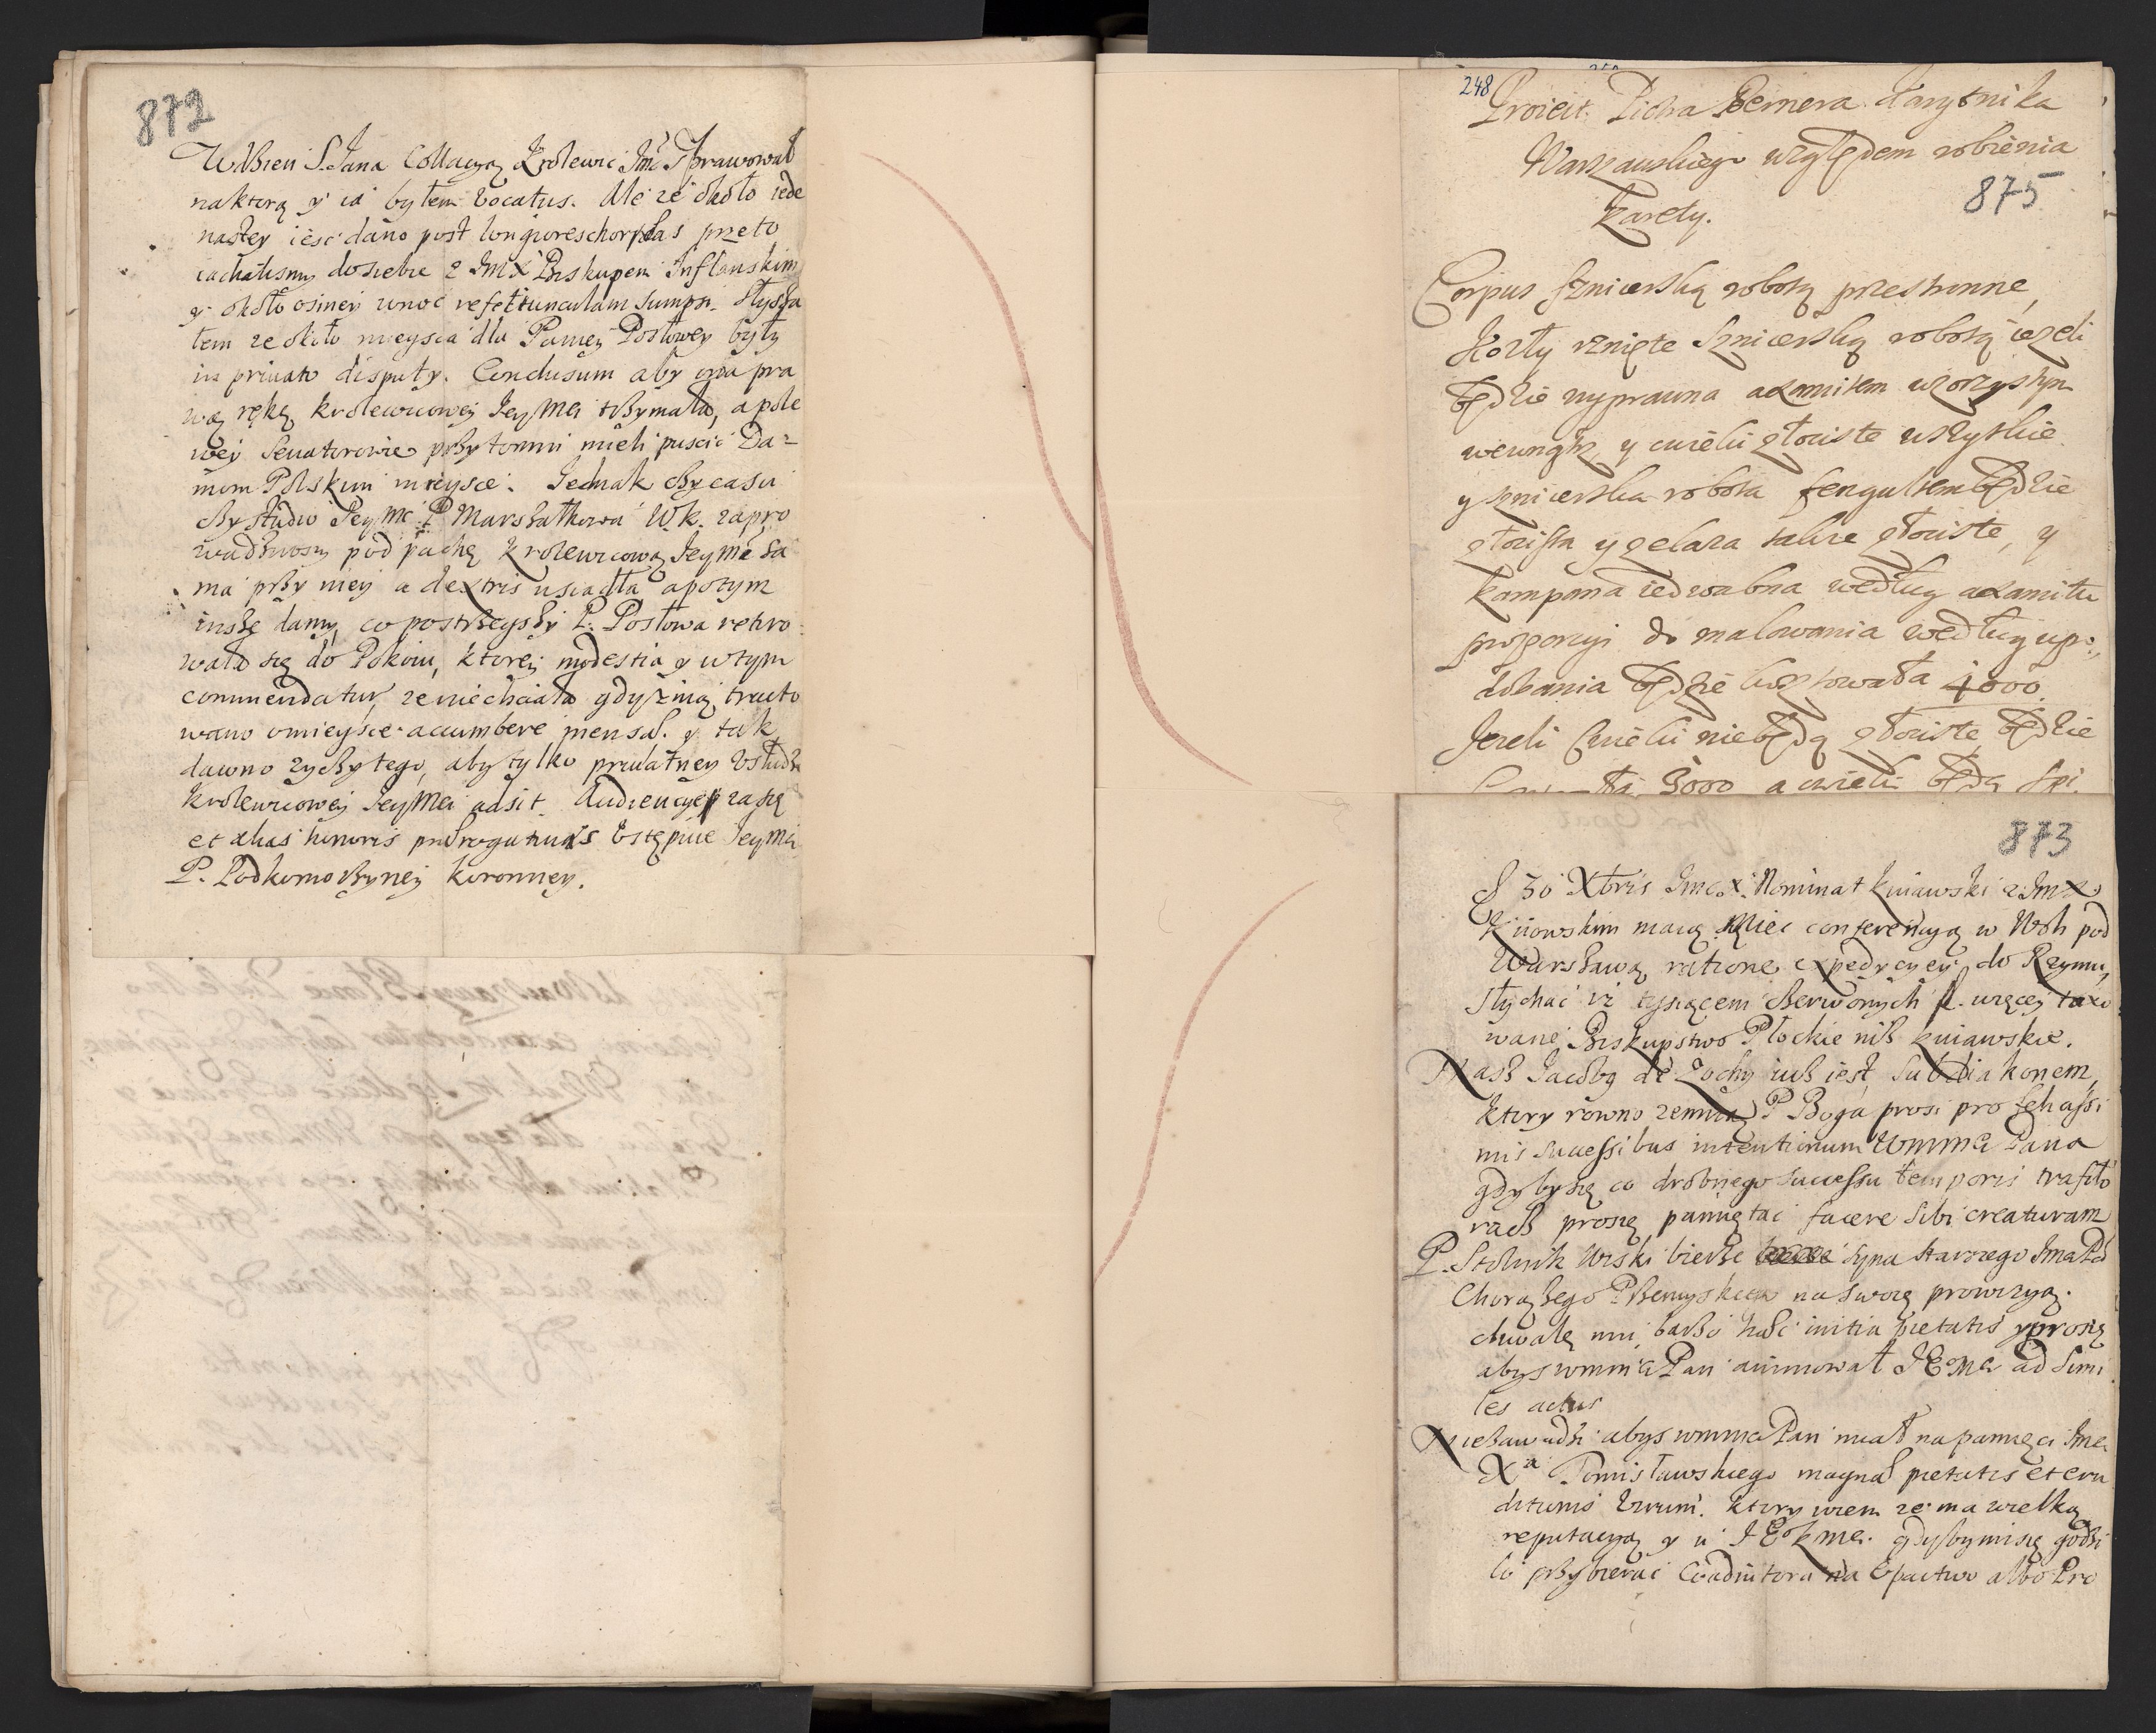 872
W dzien S. Jana Collacyą Krolewic Jmć Sprawował
na ktorą y ia byłem vocatus. Ale że około iede
nastey ieść dano post longiores choreas przeto
iachalismy do siebie z JmX Biskupem Inflanskim
y około osmey w noc refectiunculam sumpsi. Słysza
łem ze około mieysca dla Paniey Posłowey były
in privato disputy. Conclusum aby ona pra
wą rękę krolewicowey JeyMci trzymała, a po le
wey Senatorowie przytomni mieli puscić Da=
mom Polskim mieysce. Jednak
JeyMć P Marszałkowa W.k. zapro
wadziwszy pod pachę Krolewicową Jeymć sa
ma przy niey a dextris usiadła a potym
insze damy, co postrzegszy P. Posłowa retiro
wała się do Pokoiu, ktorey modestia y w tym
commendatur, ze niechciała gdysz nią trakto
wano o mieysce accumbere mensae. y tak
dawno zyczy tego, aby tylko prywatney usłudze
krolewicowey JeyMci adsit. Audiencye zasię
et alias honoris praerogativas Ustępuie Jeymci
P. Podkomorzyney koronney.
248
Proiekt Piotra Bernera Stangrnika
Warszawskiego względem robienia
875
Karety.
Corpus sznicerską robotą przestronne,
Kozły rznięte Sznicerską robotą ieżeli
będzie wyprawna axamitem wzorzystym
wewnątrz y cwieki złociste wszystkie
y sznicerska robota fengultem będzie
złocista y zelaza także złociste, y
kampana iedwabna według axamitu
proporcyi do malowania według upo,,
dobania będzie kosztowała 4000.
Jezeli Cwieki nie będą złociste będzie
3000 a cwieki będą spi.
873
d 30 Xbris JmcX. Nominat kuiawski z JmX
Kiiowskim maią Mieć conferencyą w Woli pod
Warszawą ratione expedycyey do Rzymu,
Słychać iż tysiącem Czerwonych fl. więcey taxo
wane Biskupstwo Płockie nisz kuiawskie.
Nasz Jacobg de Zochy iusz iest Subdiakonem,
ktory rowno zemną P Boga prosi pro felicissi
mis successibus intentionum WmmCi Pana
gdyby się co drobnego successu temporis trafiło
racz proszę pamiętać facere sibi creaturam
P. Stolnik Urski bierze syna starszego JmciPa
Chorązego Przemyskiego na swoię prowizyą.
chwalę mu barzo has initia pietatis y proszę
abys wmmCi Pan animował JEmci ad simi
les actus
Niezawadzi abys wmmCi Pan miał na pamięci Jmci
Xa Tomisławskiego magnae pietatis et eru
ditionis Virum. ktory wiem ze ma wielką
reputacyą y u JEKmci. gdyby mi się godzi
ło przybierać Coadiutora na Opactwo albo Pro